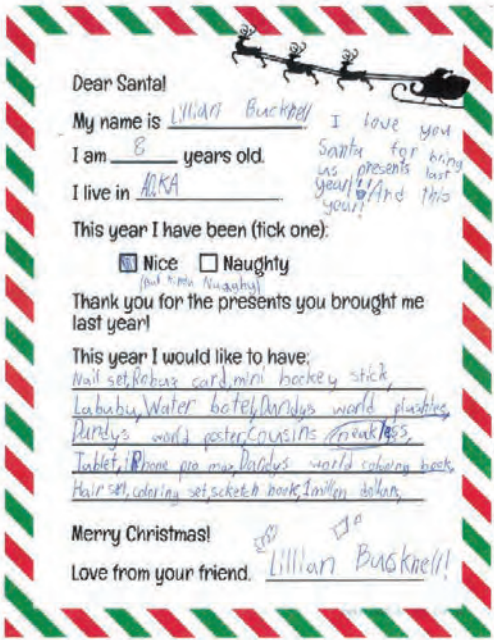 Dear Santa!
My name is Lillian Bucknell
I am 8 years old.
I live in AOKA
I love you
Santa for bring
us presents last
year!! And this
year!
This year I have been (tick one):
Nice Naughty
(but kinda Nughty)
Thank you for the presents you brought me
last year!
This year I would like to have:
Nail set, Robux card, mini hockey stick,
Labubu, Water botel, Dandys world plushies,
Dandys world poster, cousins neakless,
Tablet, iPhone pro max, Dandys world coloring book,
Hair set, coloring set, scketch book, 1 millon dollars,
Merry Christmas!
Love from your friend. Lillian Busknell!